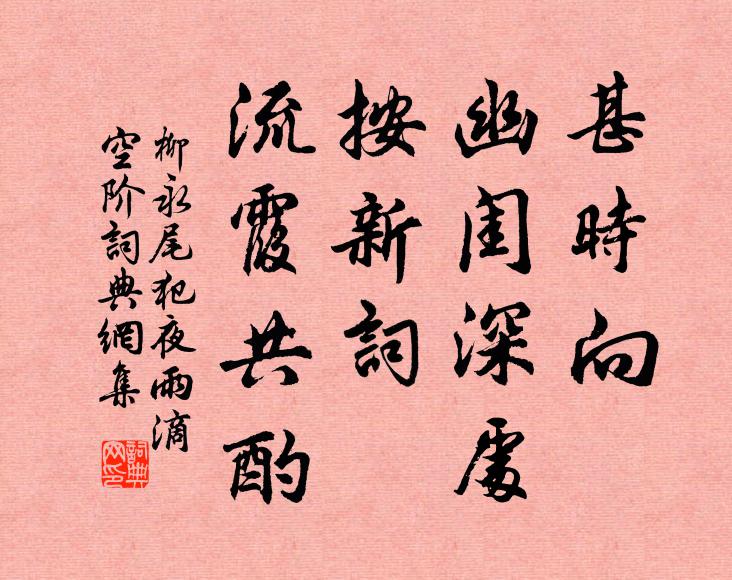 甚時向
幽闺深處
按新詞
流霞共酌
柳永尾犯夜雨滴
空阶詞典網集
詞典网印